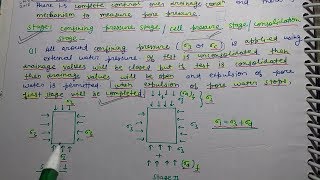 there is complete control over drainage cond and there
mechanism to measure pore pressure.
Stage I confining pressure stage / cell pressure stage / consolidation
stage -
① All around confining pressure (σ3 or σc) is applied using
external water pressure if test is unconsolidated then
drainage valves will be closed but if test is consolidated
then drainage valve will be open and expulsion of pore
water is permitted, when expulsion of pore water stops,
first stage will be completed.
σ3
σ3
σ3
σ3
σ3
σ1 = σ3 + σd
Stage II